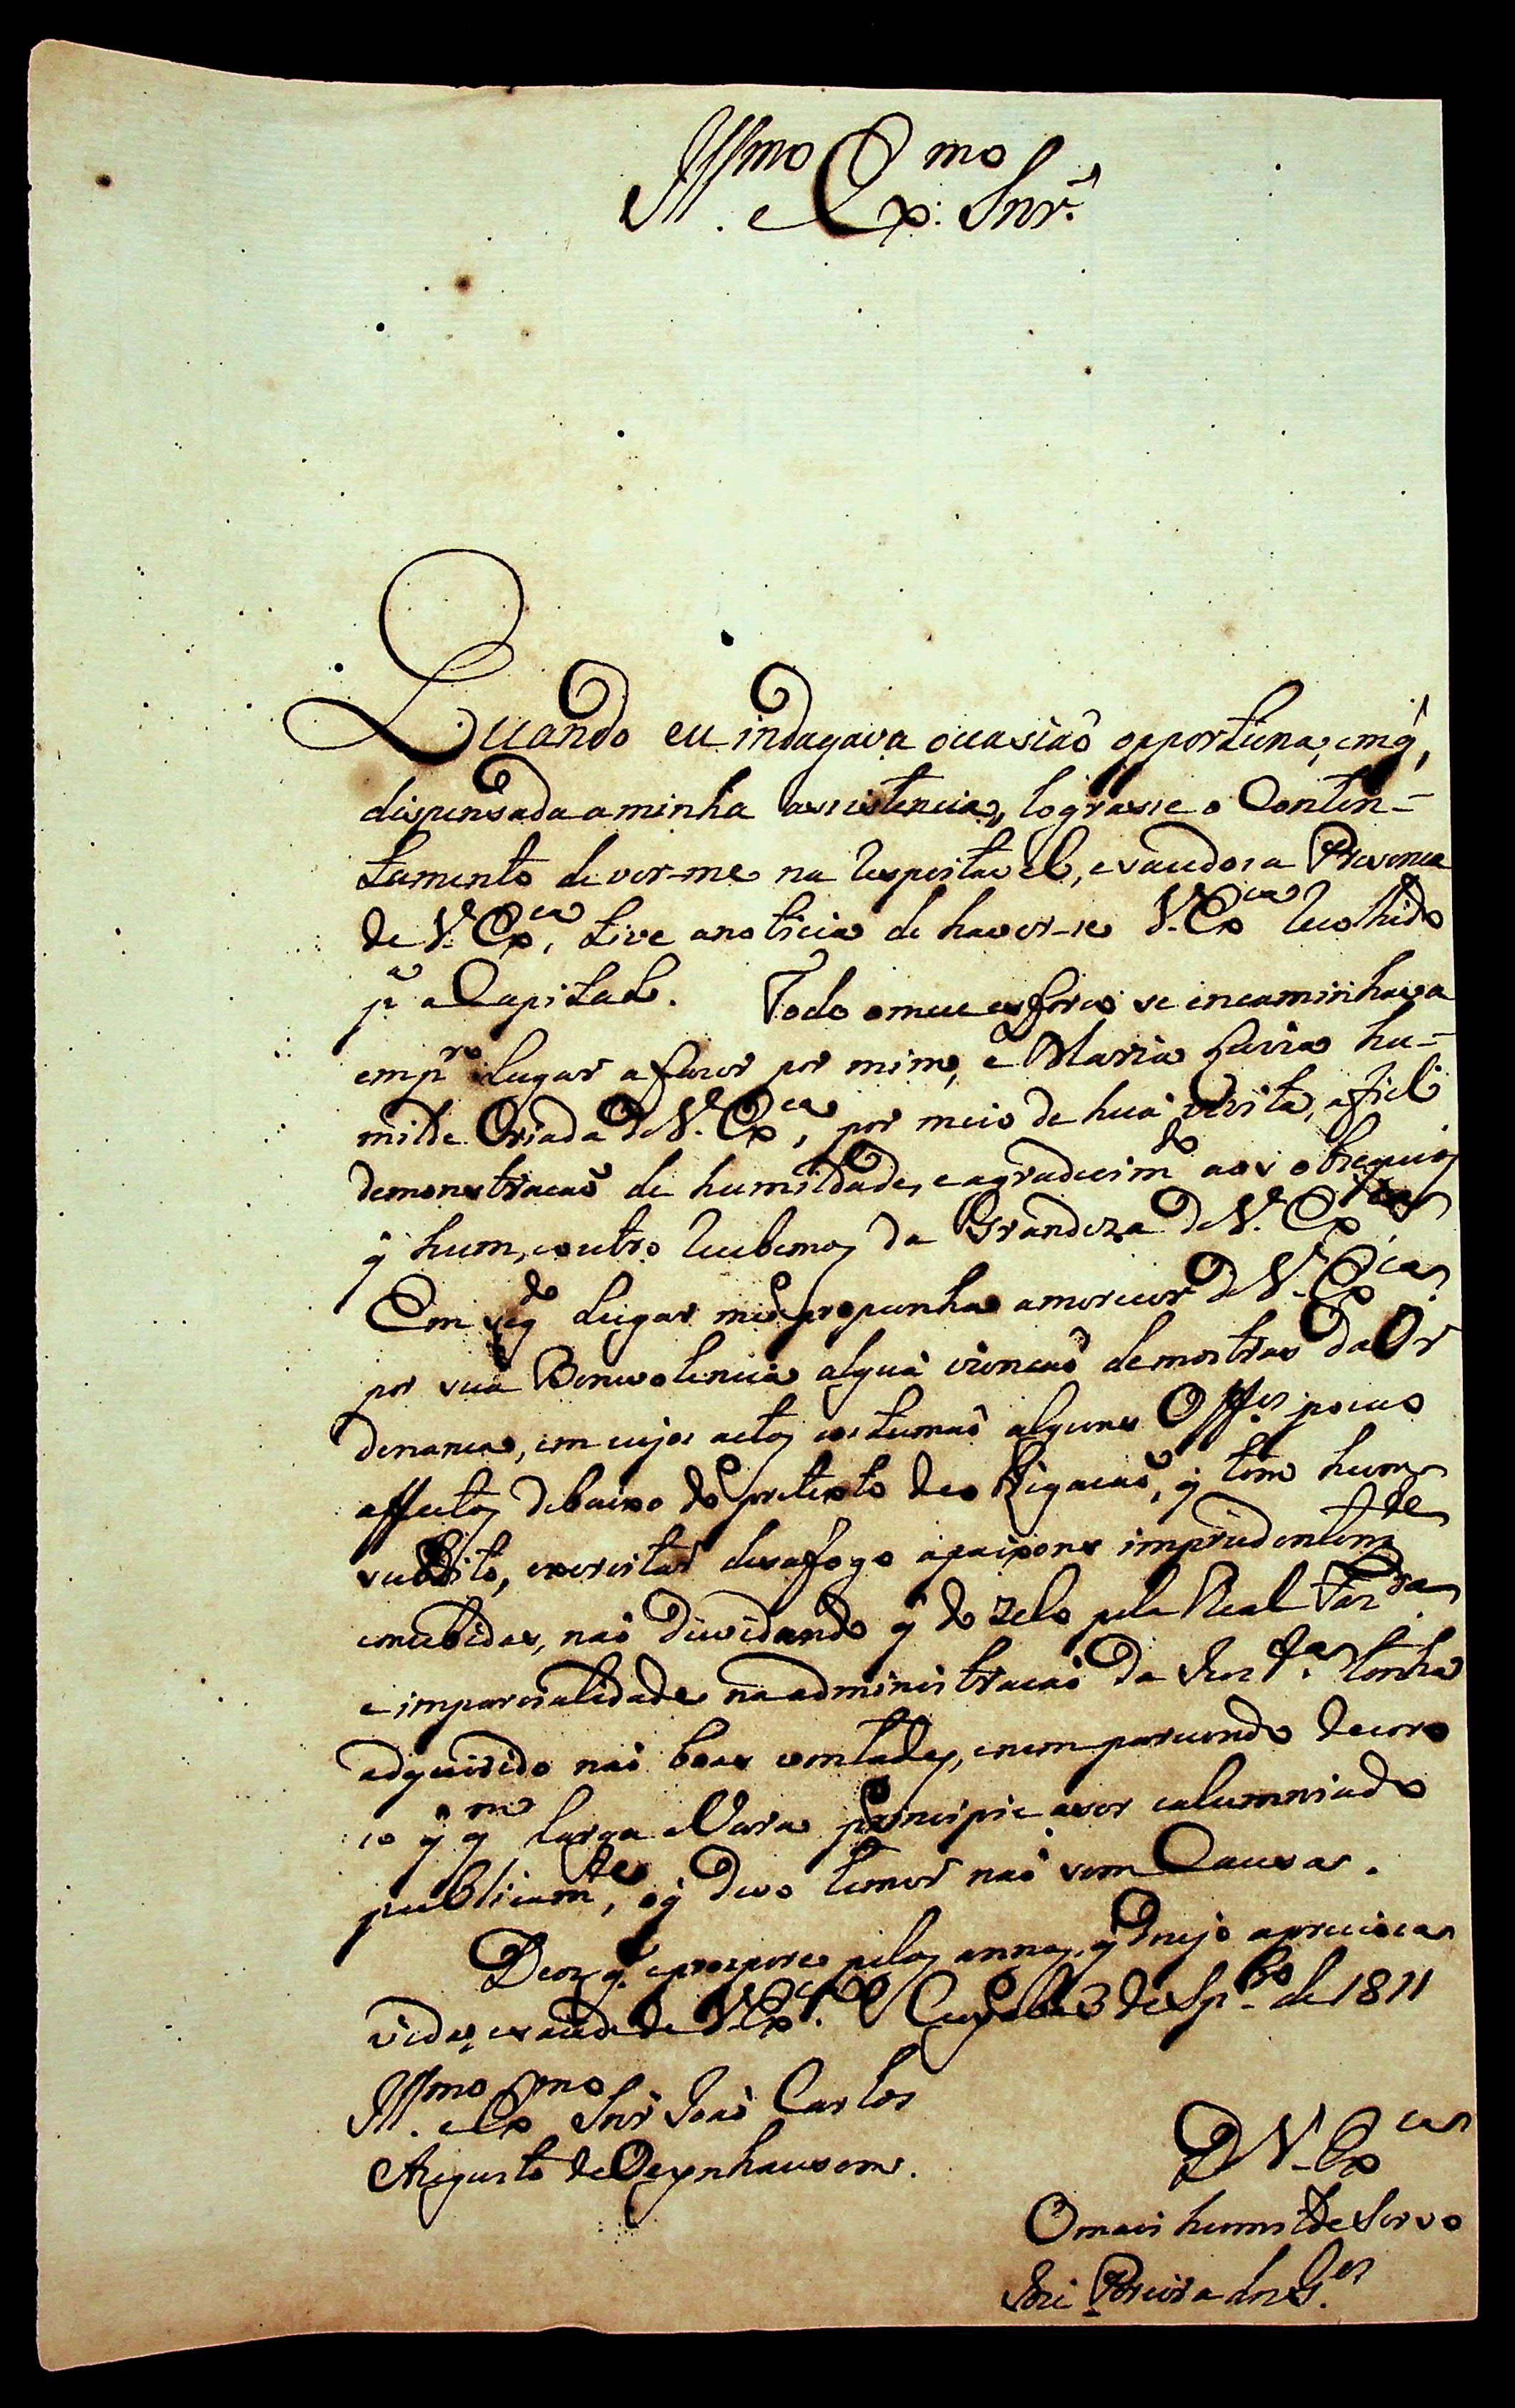 Illmo e Exmo Snr.
Quando eu indagava occasiaõ opportuna, em q̃,
dispensada a minha assistencia, lograsse o Conten-
tamento de ver-me na respeitavel, e saudosa Presenca
de V. Exca, tive a noticia de haver-se V. Exca recolhido
pa a Capital. Todo o meu esforco se encaminhava
em pro Lugar a fazer por mim, e Maria
milde Criada de V. Exca, por meio de huã vizita, a fiel
demonstracaõ de humildade, e agradecimto aos obzequios
q̃ hum, e outro recebemos da Grandeza de V. Exca
Em sego Lugar me propunha a merecer de V. Exca
por sua Benevolencia alguã izencaõ de mostras da Or
denanca, em cujos actos costumaõ alguns Offes pouco
affectos debaixo do pretexto de obrigacaõ, q̃ tem hum
subdito, exercitar desafogo a paixons imprudentemte
concebidas, naõ duvidando q̃ do zelo pela Real Fazda
e imparcialidade na administracaõ da Justa tenha
adquirido naõ boas vontades, e nem parecendo decoro
so q̃ qm larga a Vara principie a ser calumniado
publicamte, o q̃ devo temer naõ sem Causa.
Deos ge e prospere pelos annos, q̃ dezejo a precioza
vida, e saude de V. Exca. Cuyabá 3 de Spbro de 1811
Illmo e Exmo Snr Joaõ Carlos
Augusto de Oeynhausem.
D V. Exca
O mais humilde Servo
Joze Pereira dos G.es